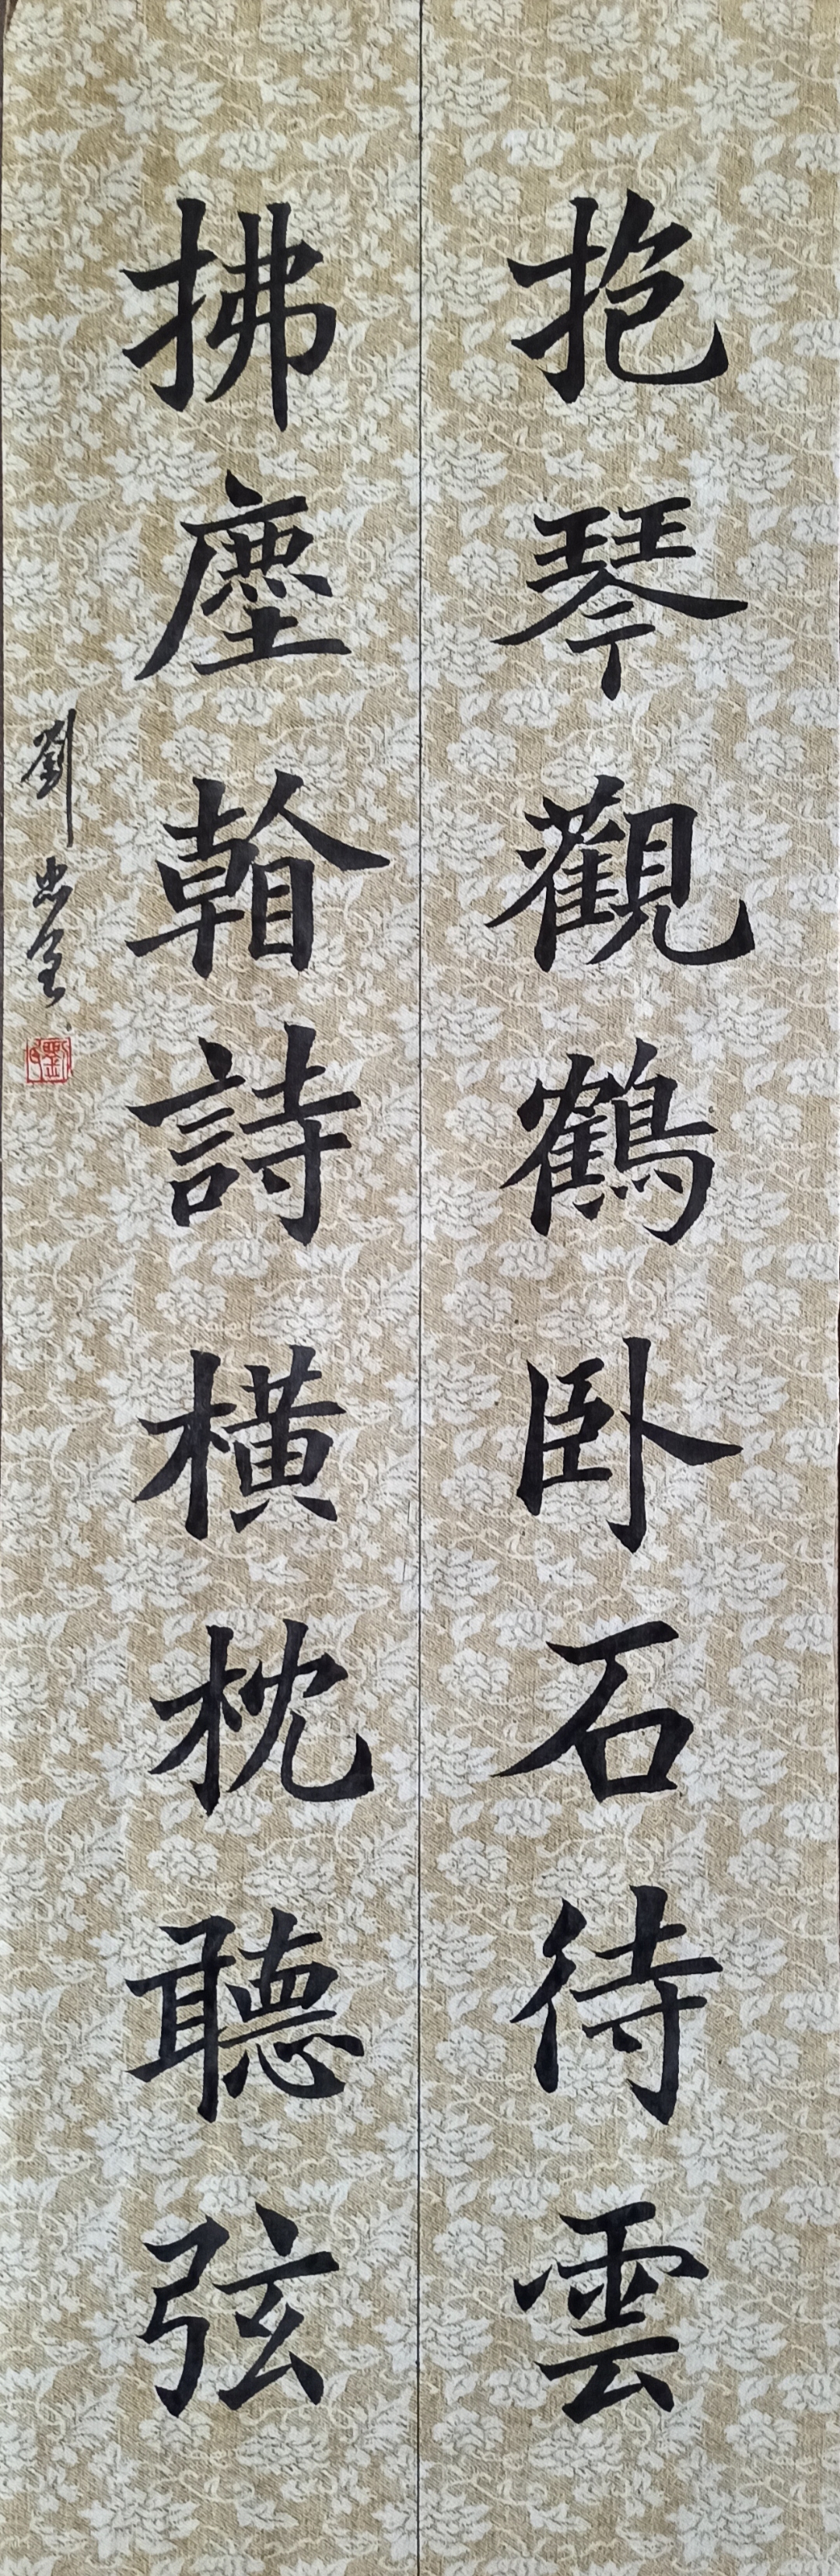 抱琴觀鶴卧石待雲
拂塵詩橫枕聽弦
劉忠